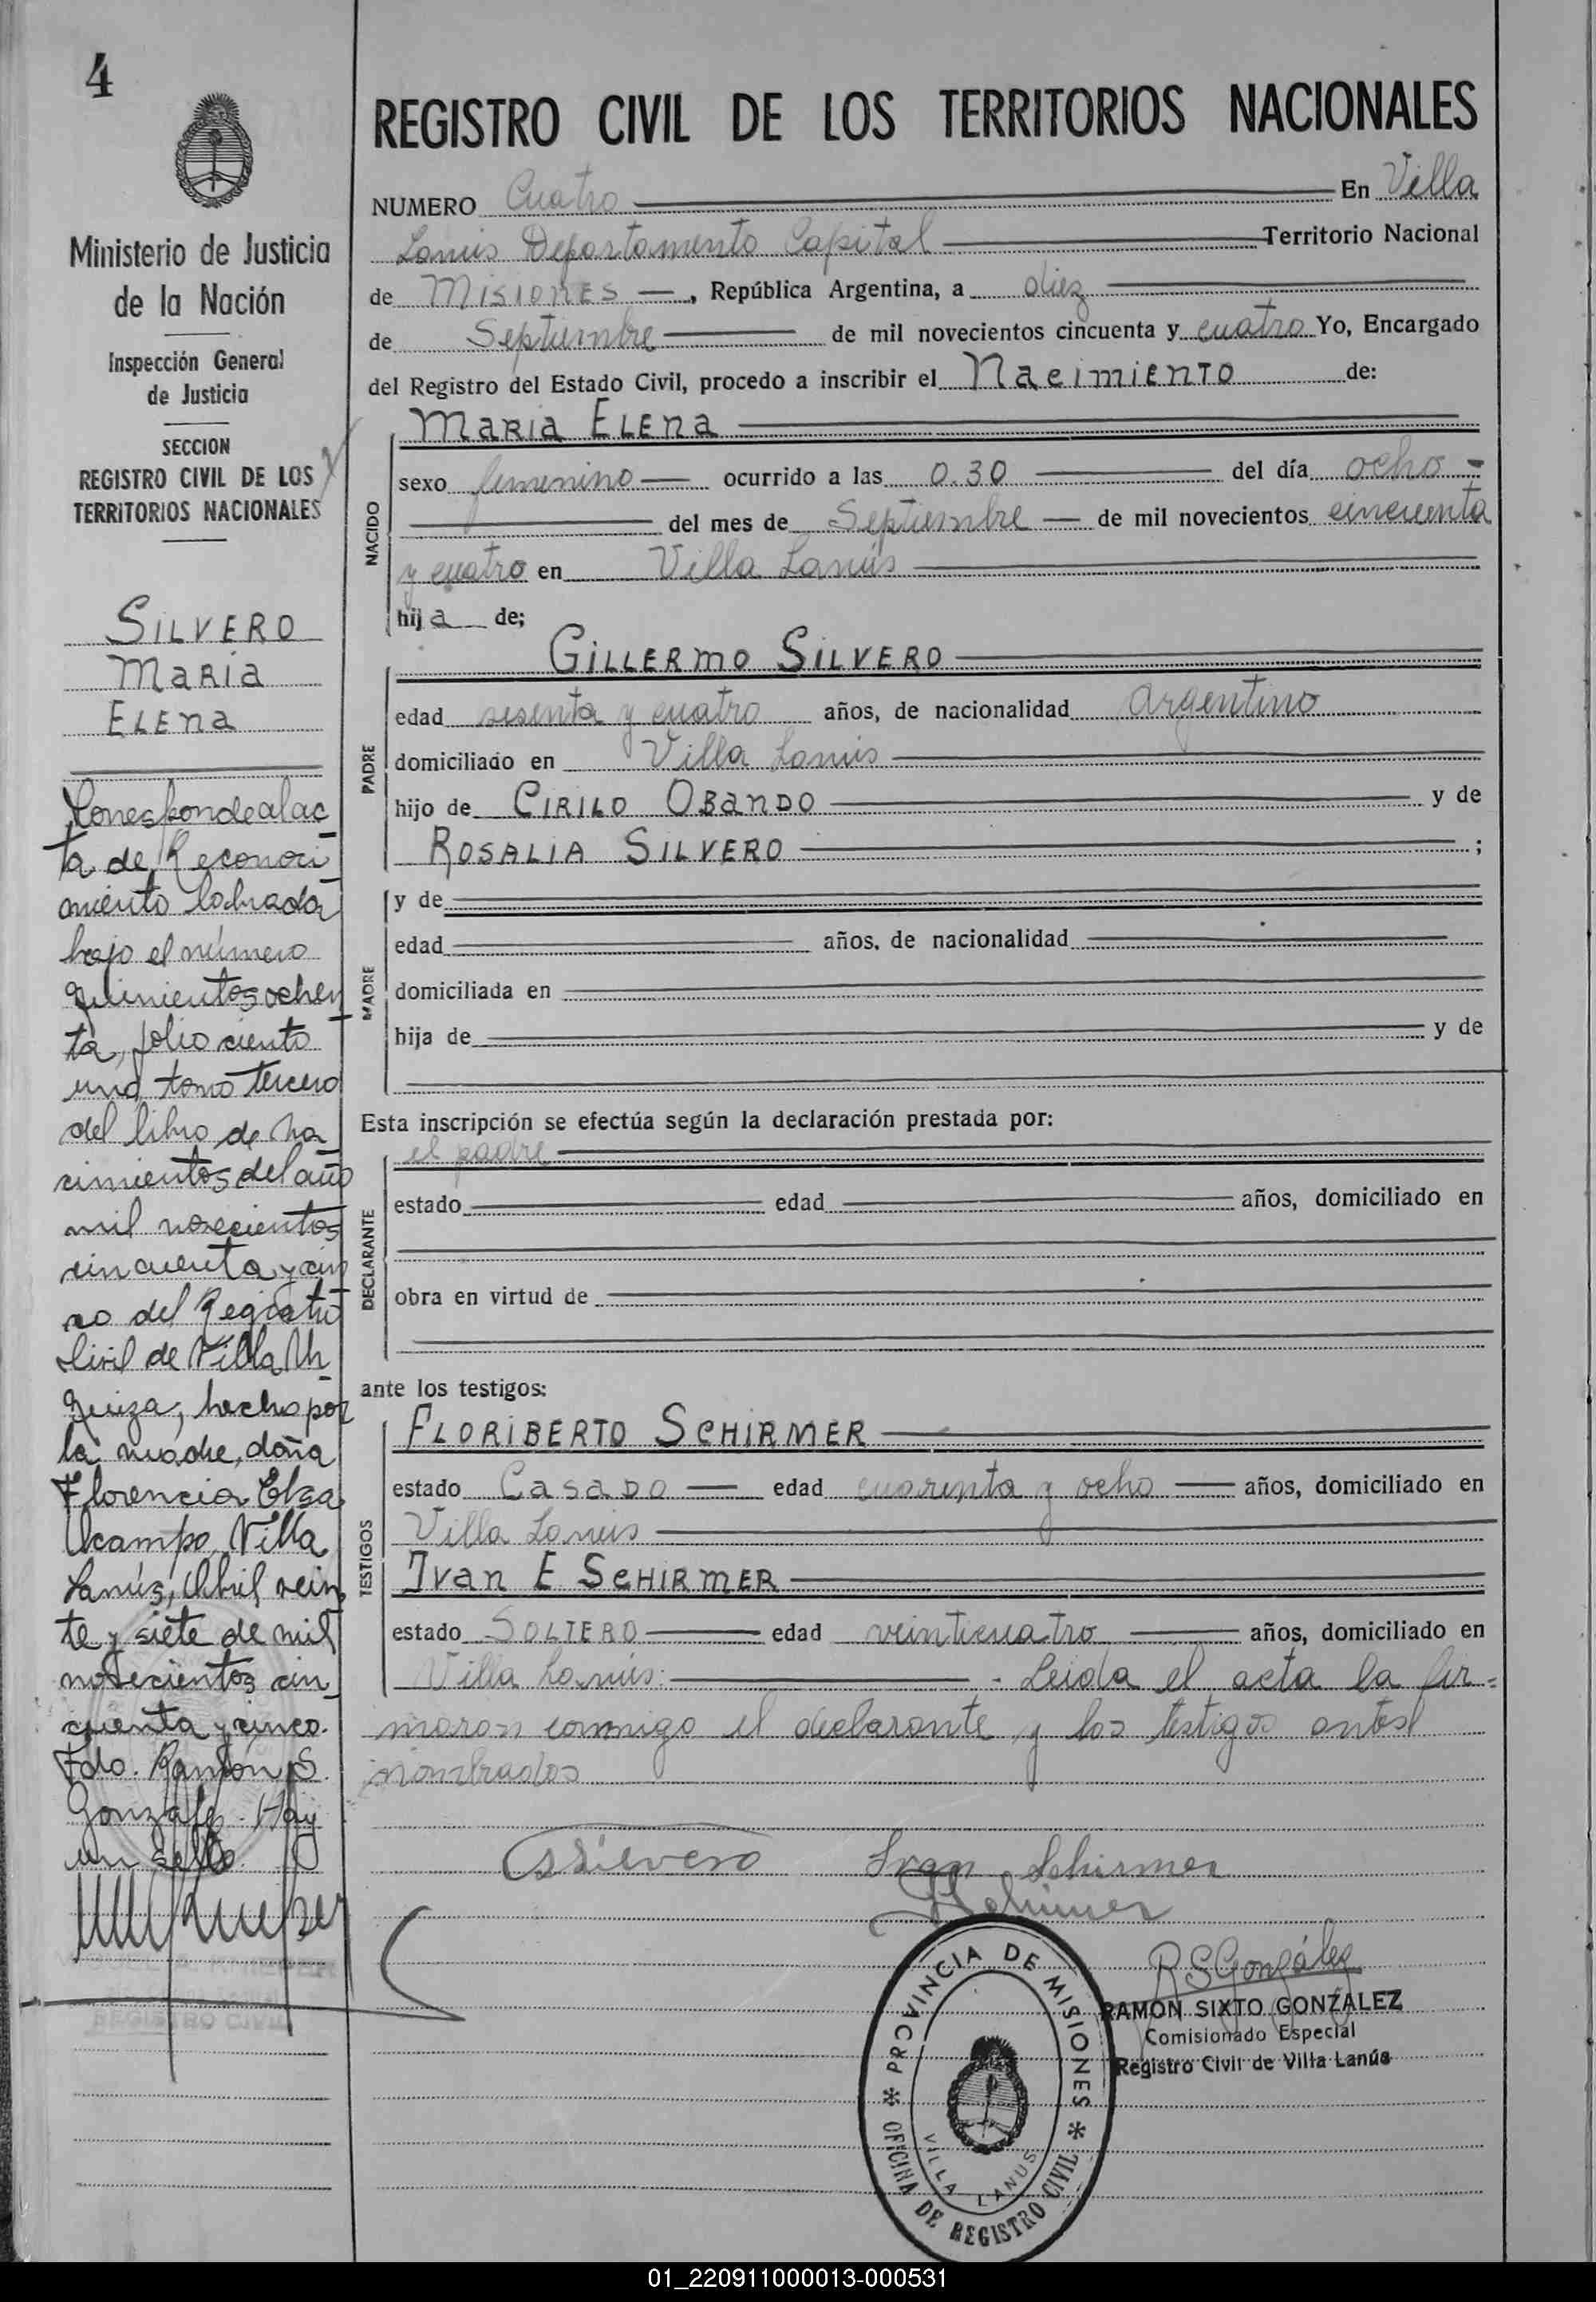 4
Ministerio de Justicia
de la Nación
Inspección General
de Justicia
SECCION
REGISTRO CIVIL DE LOS
TERRITORIOS NACIONALES
SILVERO
MARIA
ELENA
Correspondealac-
ta de Reconoci-
miento labrada
bajo el número
quinientos ochen-
ta, folio ciento
uno, tomo tercero
del libro de na-
cimientos del año
mil novecientos
cincuenta y cin-
co del Registro
Civil de Villa Ur-
quiza, hecho por
la madre, doña
Florencia Elsa
Ocampo. Villa
Lanús, Abril vein-
te y siete de mil
novecientos cin-
cuenta y cinco.
Fdo. Ramón S.
Gonzalez - Hay
un sello.
REGISTRO CIVIL
REGISTRO CIVIL DE LOS TERRITORIOS NACIONALES
NUMERO Cuatro En Villa
Lanus Departamento Capital Territorio Nacional
de MISIONES, República Argentina, a diez
de Septiembre de mil novecientos cincuenta y cuatro Yo, Encargado
del Registro del Estado Civil, procedo a inscribir el Nacimiento de:
NACIDO
MARIA ELENA
sexo femenino ocurrido a las 0.30 del día ocho
del mes de Septiembre de mil novecientos cincuenta
y cuatro en Villa Lanús
hija de;
PADRE
GILLERMO SILVERO
edad sesenta y cuatro años, de nacionalidad Argentino
domiciliado en Villa Lanus
hijo de CIRILO OBANDO y de
ROSALIA SILVERO ;
MADRE
y de
edad años, de nacionalidad
domiciliada en
hija de y de
Esta inscripción se efectúa según la declaración prestada por:
DECLARANTE
el padre
estado edad años, domiciliado en
obra en virtud de
ante los testigos:
TESTIGOS
FLORIBERTO SCHIRMER
estado Casado edad cuarenta y ocho años, domiciliado en
Villa Lanus
Ivan E SCHIRMER
estado SOLTERO edad veinticuatro años, domiciliado en
Villa Lanús. - Leida el acta la fir=
maron conmigo el declarante y los testigos antes
nombrados
GSilvero Ivan Schirmer
FSchirmer
RSGonzález
RAMON SIXTO GONZALEZ
Comisionado Especial
Registro Civil de Villa Lanús
PROVINCIA DE MISIONES
OFICINA DE REGISTRO CIVIL
VILLA LANUS
01_220911000013-000531